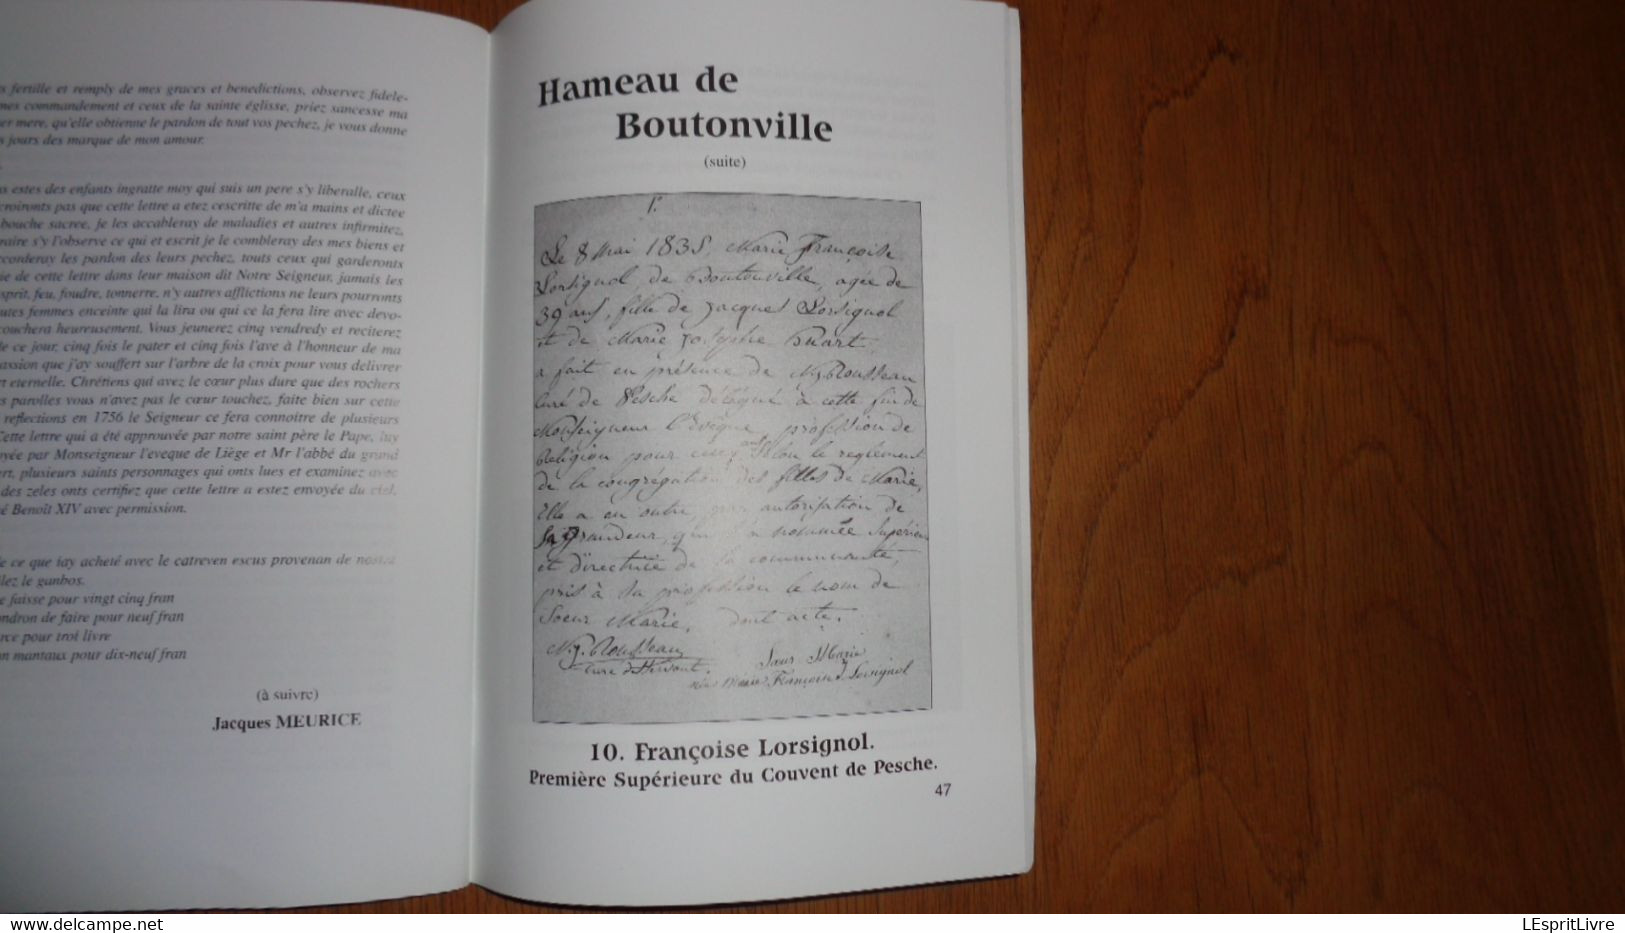 s fertille et remply de mes graces et benedictions, observez fidele-
mes commandement et ceux de la sainte églisse, priez sancesse ma
er mere, qu'elle obtienne le pardon de tout vos pechez, je vous donne
s jours des marque de mon amour.
s estes des enfants ingratte moy qui suis un pere s'y liberalle, ceux
croironts pas que cette lettre a etez cescritte de m'a mains et dictee
bouche sacree, je les accableray de maladies et autres infirmitez,
raire s'y l'observe ce qui et escrit je le combleray des mes biens et
ccorderay les pardon des leurs pechez, touts ceux qui garderonts
ie de cette lettre dans leur maison dit Notre Seigneur, jamais les
sprit, feu, foudre, tonnerre, n'y autres afflictions ne leurs pourronts
utes femmes enceinte qui la lira ou qui ce la fera lire avec devo-
couchera heureusement. Vous jeunerez cinq vendredy et reciterez
le ce jour, cinq fois le pater et cinq fois l'ave à l'honneur de ma
assion que j'ay souffert sur l'arbre de la croix pour vous delivrer
rt eternelle. Chrétiens qui avez le cœur plus dure que des rochers
s parolles vous n'avez pas le cœur touchez, faite bien sur cette
reflections en 1756 le Seigneur ce fera connoitre de plusieurs
Cette lettre qui a été approuvée par notre saint père le Pape, luy
yée par Monseigneur l'eveque de Liège et Mr l'abbé du grand
ert, plusieurs saints personnages qui onts lues et examinez avec
des zeles onts certifiez que cette lettre a estez envoyée du ciel,
é Benoît XIV avec permission.
e ce que iay acheté avec le catreven escus provenan de nostre
lez le ganbos.
e faisse pour vingt cinq fran
ondron de faire pour neuf fran
rce pour troi livre
n mantaux pour dix-neuf fran
(à suivre)
Jacques MEURICE
Hameau de
Boutonville
(suite)
1.
Le 8 mai 1835, Marie Françoise
Lorsignol, de Boutonville, agée de
39 ans, fille de Jacques Lorsignol
et de Marie Josephe Huart,
a fait en présence de N.J. Rousseau
curé de Pesche délégué à cette fin de
Monseigneur l'Evêque, profession de
Religion pour cinq ans selon le reglement
de la congrégation des filles de Marie,
Elle a en outre, par autorisation de
Sa Grandeur, été nommée Supérieure
et directrice de la communauté,
pris à sa profession le nom de
Soeur Marie, dont acte.
N.J. Rousseau
Soeur Marie
née Marie Françoise Lorsignol
10. Françoise Lorsignol.
Première Supérieure du Couvent de Pesche.
47
posted by
LEspritLivre